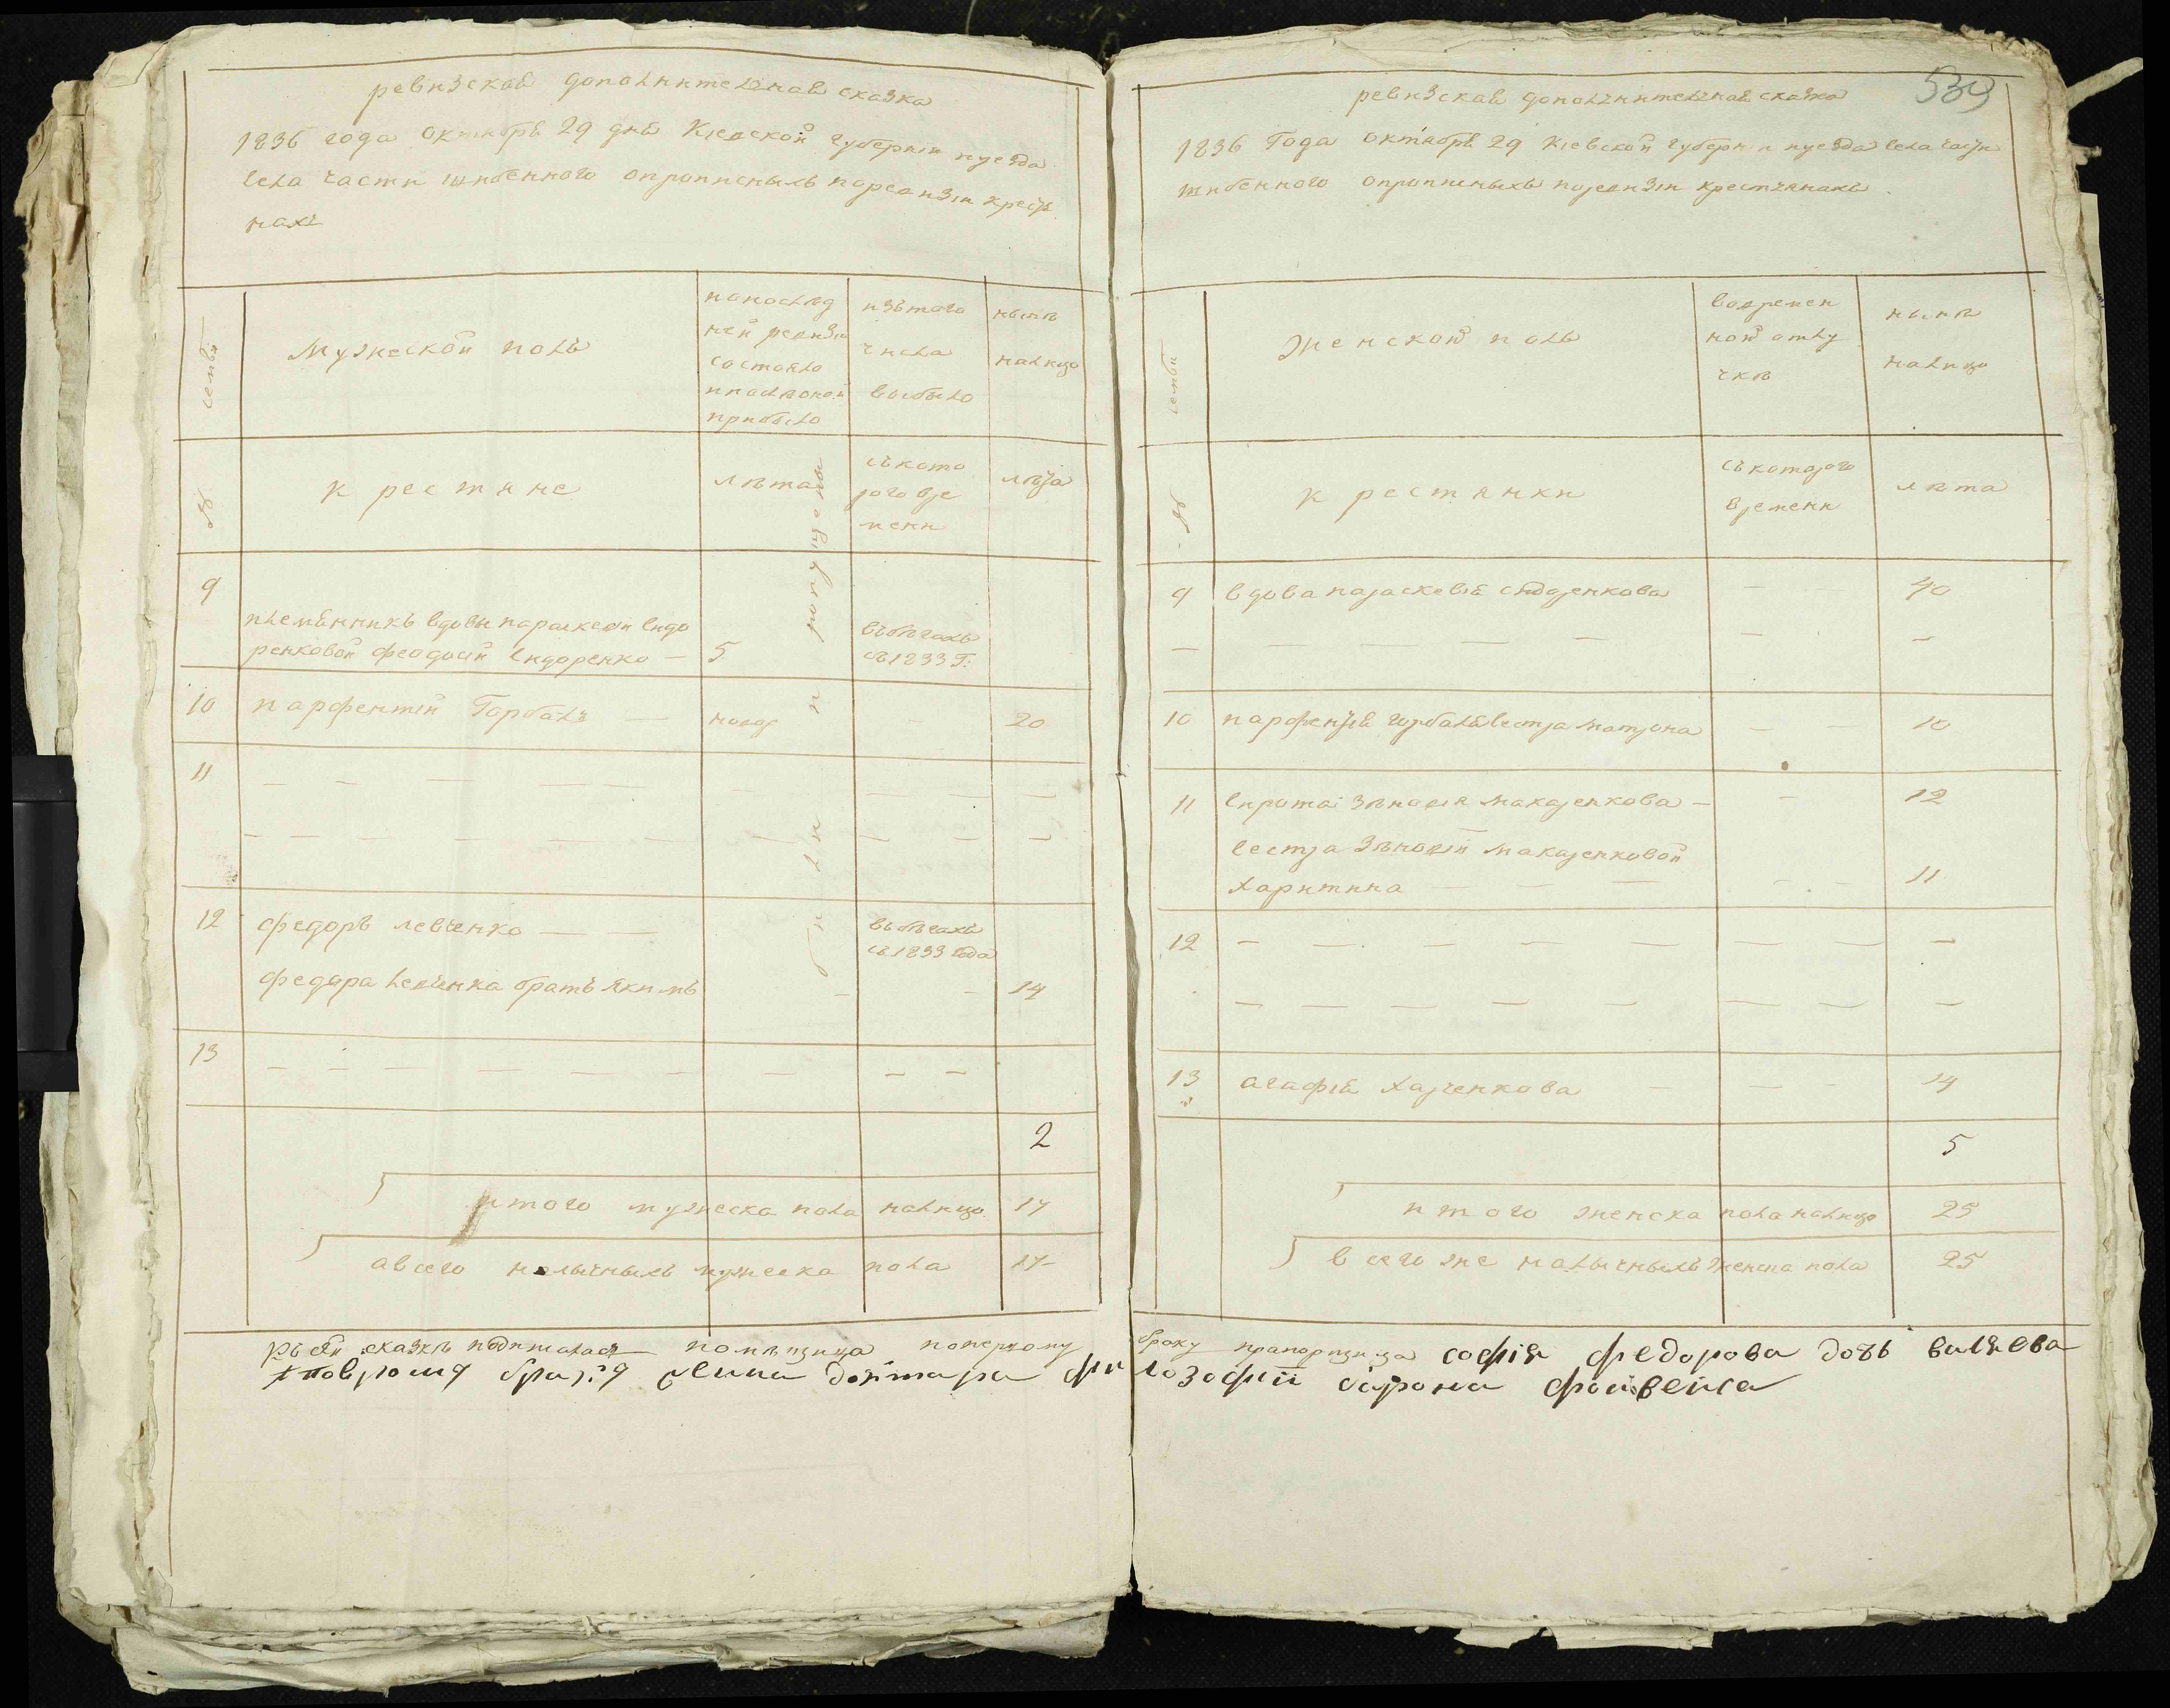 ревизская дополнительная сказка
1836 года октября 29 дня Киевской губернии и уезда
села части шибенного о прописныхъ по ревизіи крестья
нахъ
семьи
Мужеской полъ
по послед
ней ревизіи
состояло
и после оной
прибыло
изъ того
числа
выбыло
ныне
налицо
№
крестяне
лета
съ кото
рого вре
мени
лета
были пропущены
9
племянникъ вдовы параскеви сидо
ренковой феодосій Сидоренко — 5
въ бегахъ
съ 1833 г:
10 парфентій Горбаль — новор — 20
11 — — — — — — — —
— — — — — — — — —
12 федоръ левченко — —
въ бегахъ
съ 1833 года
федора левченка братъ якимъ — — 14
13 — — — — — — — — —
2
итого мужеска пола налицо 17
а всего наличныхъ мужеска пола 17
539
ревизская дополнительная сказка
1836 Года октября 29 Киевской губерніи и уезда села части
шибенного о прописныхъ по ревизіи крестьянахъ
семьи
Женской полъ
во времен
ной отлу
чке
ныне
налицо
№
крестянки
съ которого
времени
лета
9 вдова параскевія сидоренкова — — 40
— — — — — —
10 парфентія горбаля сестра матрона — 10
11 сирота зеновія макаренкова — — 12
сестра зеновіи макаренковой
харитина — — — — — 11
12 — — — — — — — —
— — — — — — — —
13 агафія харченкова — — — 14
5
итого женска пола налицо 25
всего же наличныхъ женска пола 25
къ сей сказке подписалася помещица поперному браку прапорщица софія федорова дочь валяева
а по второму браку жена доктора филозофіи барона